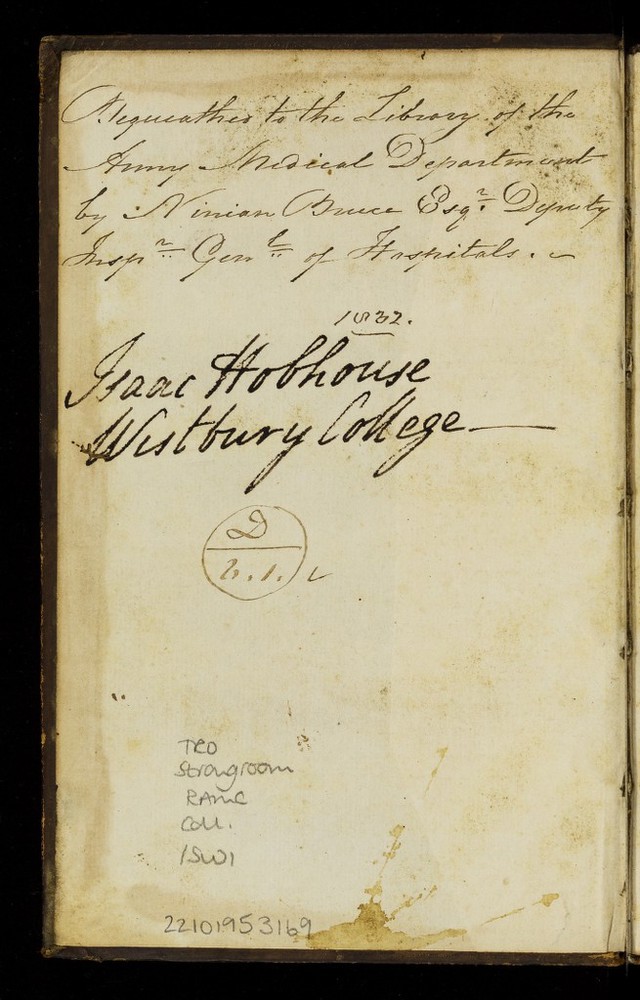 Bequeathed to the Library of the
Army Medical Department
by Ninian Bruce Esqr. Deputy
Inspr. Genl. of Hospitals.
1832.
Isaac Hobhouse
Westbury College
D
2.1.
TRO
Strongroom
RAMC
Coll.
22101953169